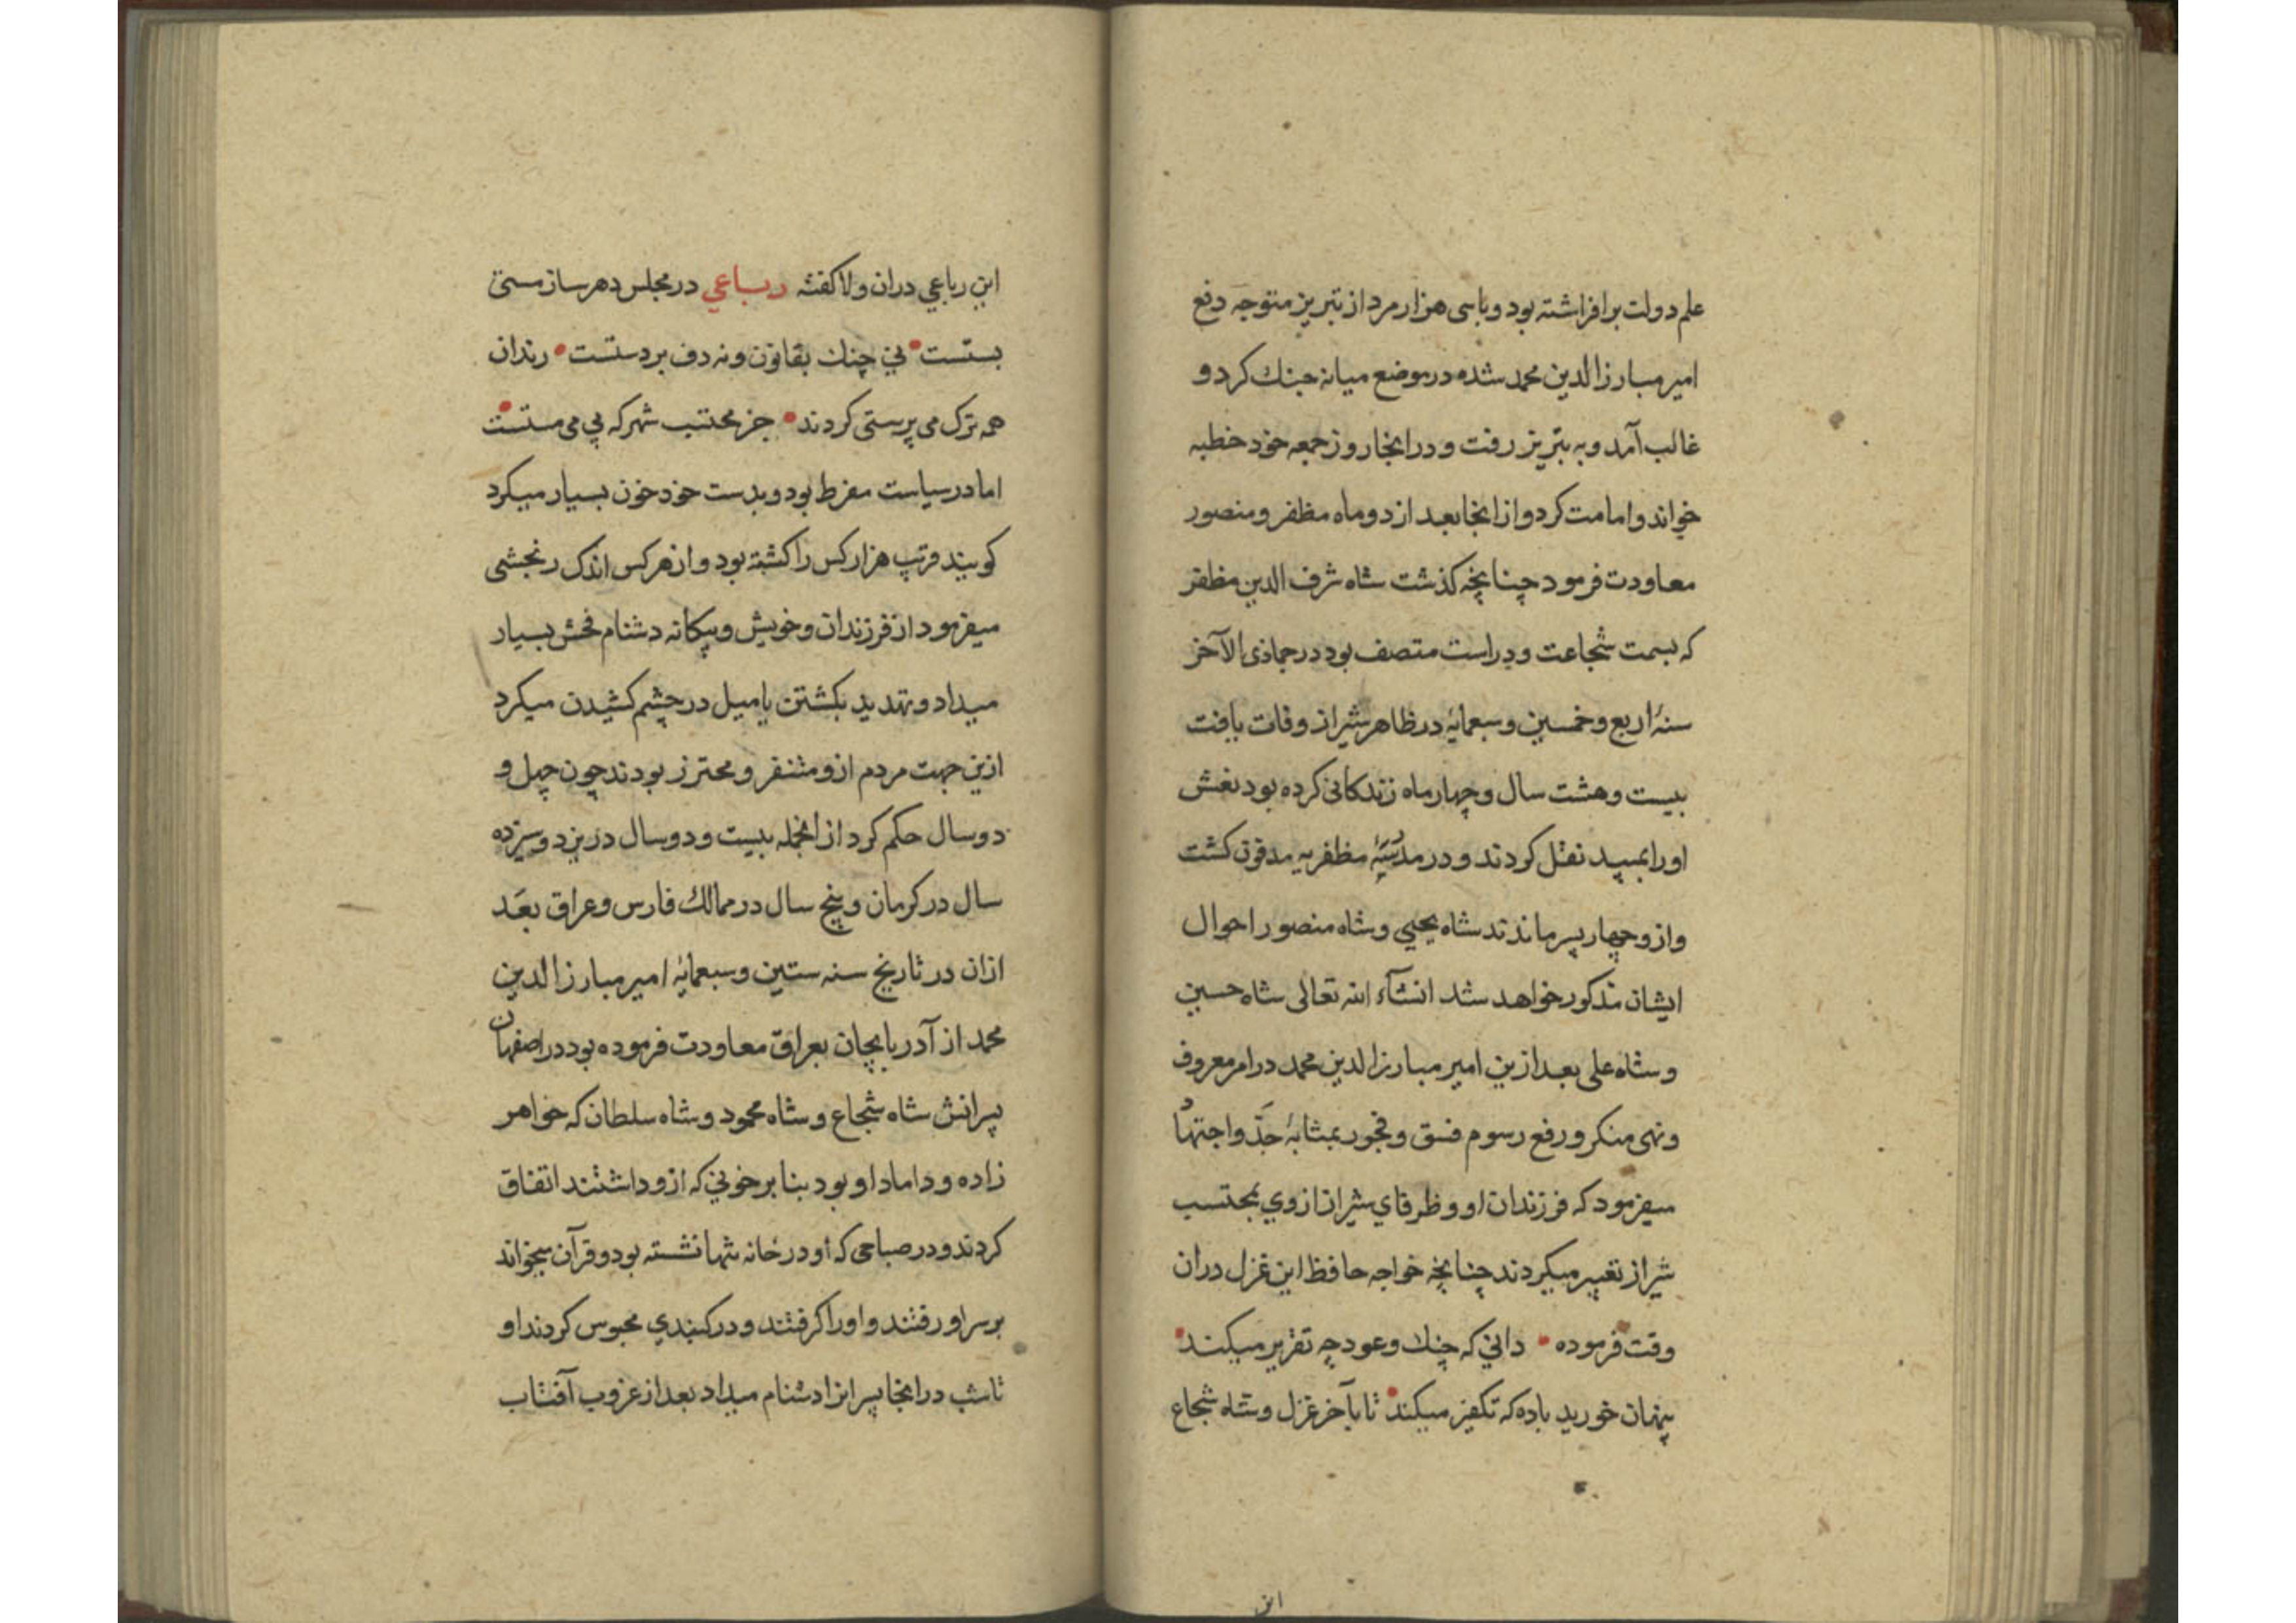 علم دولت برافراشته بود و باسی هزار مرد از تبریز متوجه دفع
امیر مبارز الدین محمد شده در موضع میانه جنك کرد و
غالب آمد و به تبریز رفت و در انجا روز جمعه خود خطبه
خواند و امامت کرد و از انجا بعد از دو ماه مظفر و منصور
معاودت فرمود چنانچه کذشت شاه شرف الدین مظفر
که بسمت شجاعت و دراست متصف بود در جماذی الآخر
سنهٔ اربع و خمسین و سبعمایهٔ در ظاهر شیراز وفات یافت
بیست و هشت سال و چهار ماه زندکانی کرده بود نعش
او را بمیبد نقل کردند و در مدرسهٔ مظفریه مدفون کشت
و ازو چهار پسر ماندند شاه یحیی و شاه منصور احوال
ایشان مذکور خواهد شد انشآء الله تعالی شاه حسین
و شاه علی بعد ازین امیر مبارز الدین محمد در امر معروف
و نهی منکر و رفع رسوم فسق و فجور بمثابهٔ جدّ و اجتهاد
میفرمود که فرزندان او و ظرفاي شیراز از وي بمحتسب
شیراز تعبیر میکردند چنانچه خواجه حافظ این غزل دران
وقت فرموده • داني که چنك و عود چه تقریر میکنند •
پنهان خورید باده که تکفیر میکنند • تا بآخر غزل و شاه شجاع
این
این رباعي دران ولا کفته رباعي در مجلس دهر ساز مستی
بستست • ني چنك بقانون و نه دف بر دستست • رندان
همه ترک می پرستی کردند • جز محتسب شهر که بي می مستست •
اما در سیاست مفرط بود و بدست خود خون بسیار میکرد
کویند قرتب هزار کس را کشته بود و از هر کس اندک رنجشی
میفرمود از فرزندان و خویش و بیکانه دشنام فحش بسیار
میداد و تهدید بکشتن یا میل در چشم کشیدن میکرد
ازین جهت مردم ازو متنفر و محترز بودند چون چهل و
دو سال حکم کرد از انجمله بیست و دو سال در یزد و سیزده
سال در کرمان و پنج سال در ممالك فارس و عراق بعد
ازان در تاریخ سنه ستین و سبعمایهٔ امیر مبارز الدین
محمد از آذربایجان بعراق معاودت فرموده بود در اصفهان
پسرانش شاه شجاع و شاه محمود و شاه سلطان که خواهر
زاده و داماد او بود بنابر خوني که ازو داشتند اتفاق
کردند و در صباحی که او در خانه تنها نشسته بود و قرآن میخواند
بر سر او رفتند و او را کرفتند و در کنبدي محبوس کردند او
تا شب در انجا پسرانرا دشنام میداد بعد از غروب آفتاب